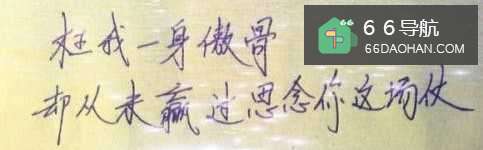 枉我一身傲骨
却从未赢过思念你这场仗
66导航
66DAOHAN.COM